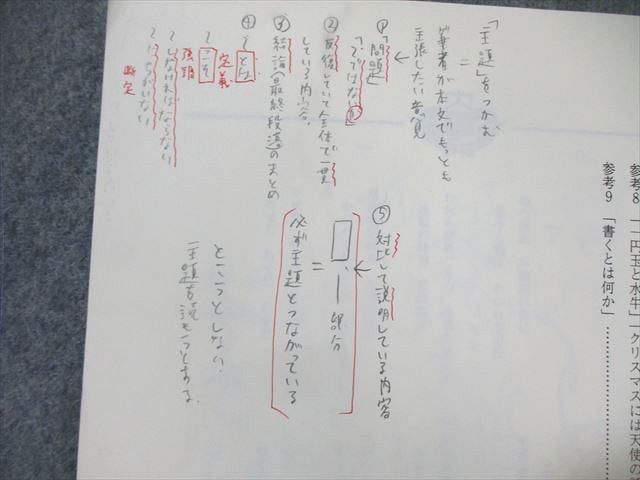 参考8 「一円玉と水牛」「クリスマスには天使の
参考9 「書くとは何か」……………………
「主題」をつかむ
＝
筆者が本文でもっとも
主張したい意見
←
① 「問題」
「?ではないか」
② 反復していて全体で一貫
している内容。
③ 結論(最終段落)のまとめ
④ ～とは 定義
～こそ 強調
～しなければならない
～ちがいない
断定
⑤ 対比して説明している内容
←
部分
＝
必ず主題とつながっている
としない。
主題を読もうとする。